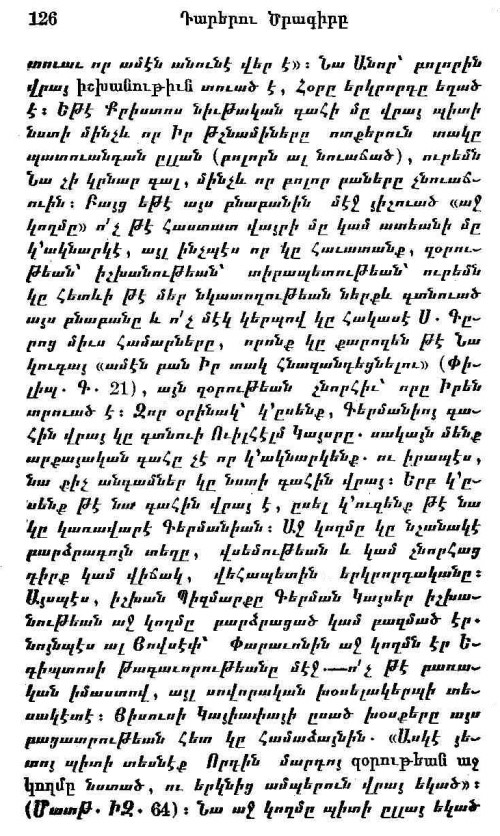 126 Դարերու Ծրագիրը
տուաւ որ ամէն անունէ վեր է»։ Նա Անոր՝ բոլորին
վրայ իշխանութիւն տուած է, Հօրը երկրորդը եղած
է։ Եթէ Քրիստոս նիւթական գահի մը վրայ պիտի
նստի մինչև որ Իր թշնամիները ոտքերուն տակը
պատուանդան ըլլան (բոլորն ալ նուաճած), ուրեմն
Նա չի կրնար գալ, մինչև որ բոլոր բաները չնուաճ-
ուին։ Բայց եթէ այս բնաբանին մէջ յիշուած «աջ
կողմը» ո՛չ թէ հաստատ վայրի մը կամ ատեանի մը
կ՚ակնարկէ, այլ ինչպէս որ կը հաւատանք, զօրու-
թեան՝ իշխանութեան՝ տիրապետութեան՝ ուրեմն
կը հետևի թէ մեր նկատողութեան ներքև գտնուած
այս բնաբանը և ո՛չ մէկ կերպով կը հակասէ Ս. Գը-
րոց միւս համարները, որոնք կը քարոզեն թէ Նա
կուգայ «ամէն բան Իր տակ հնազանդեցնելու» (Փի-
լիպ. Գ. 21), այն զօրութեան շնորհիւ՝ որը Իրեն
տրուած է։ Զոր օրինակ՝ կ՚ըսենք, Գերմանիոյ գա-
հին վրայ կը գտնուի Ուիլհէլմ Կայսրը. սակայն մենք
արքայական գահը չէ որ կ՚ակնարկենք. ու իրապէս,
նա քիչ անգամներ կը նստի գահին վրայ։ Երբ կ՚ը-
սենք թէ նա գահին վրայ է, ըսել կ՚ուզենք թէ նա
կը կառավարէ Գերմանիան։ Աջ կողմը կը նշանակէ
բարձրագոյն տեղը, վսեմութեան և կամ շնորհաց
դիրք կամ վիճակ, վեհապետին երկրորդականը։
Այսպէս, իշխան Պիզմարքը Գերման Կայսեր իշխա-
նութեան աջ կողմը բարձրացած կամ բազմած էր.
նոյնպէս ալ Յովսէփ՝ Փարաւոնին աջ կողմն էր Ե-
գիպտոսի Թագաւորութեանը մէջ.—ո՛չ թէ բառա-
կան իմաստով, այլ սովորական խօսելակերպի տե-
սակէտէ։ Յիսուսի Կայիափայի ըսած խօսքերը այս
բացատրութեան հետ կը համաձայնին. «Ասկէ յե-
տոյ պիտի տեսնէք Որդին մարդոյ զօրութեան աջ
կողմը նստած, ու երկնից ամպերուն վրայ եկած»։
(Մատթ. ԻԶ. 64)։ Նա աջ կողմը պիտի ըլլայ եկած